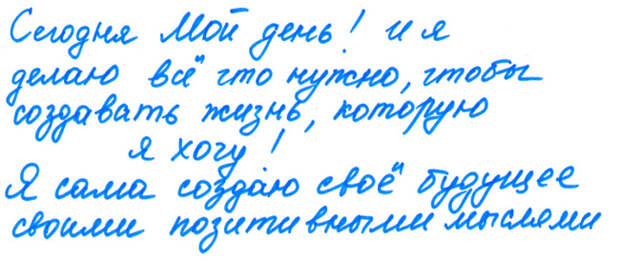 Сегодня Мой день! и я
делаю всё что нужно, чтобы
создавать жизнь, которую
я хочу!
Я сама создаю своё будущее
своими позитивными мыслями